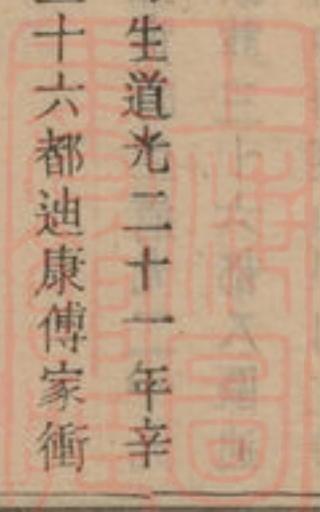 生道光二十一年辛
十六都迪康傅家衝